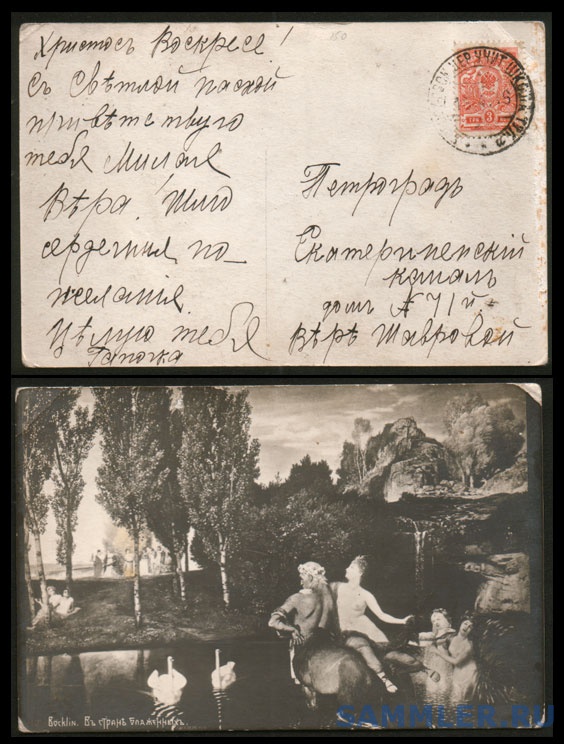 Христосъ Воскресе!
Съ Свѣтлой пасхой
привѣтствую
тебя Милая
Вѣра! Шлю
сердечныя по-
желанія
Цѣлую тебя
Петроградъ
Екатерининскій
каналъ
домъ № 71 й
Вѣрѣ Шавровой
3
Bocklin. Въ странѣ блаженныхъ.
SAMMLER.RU